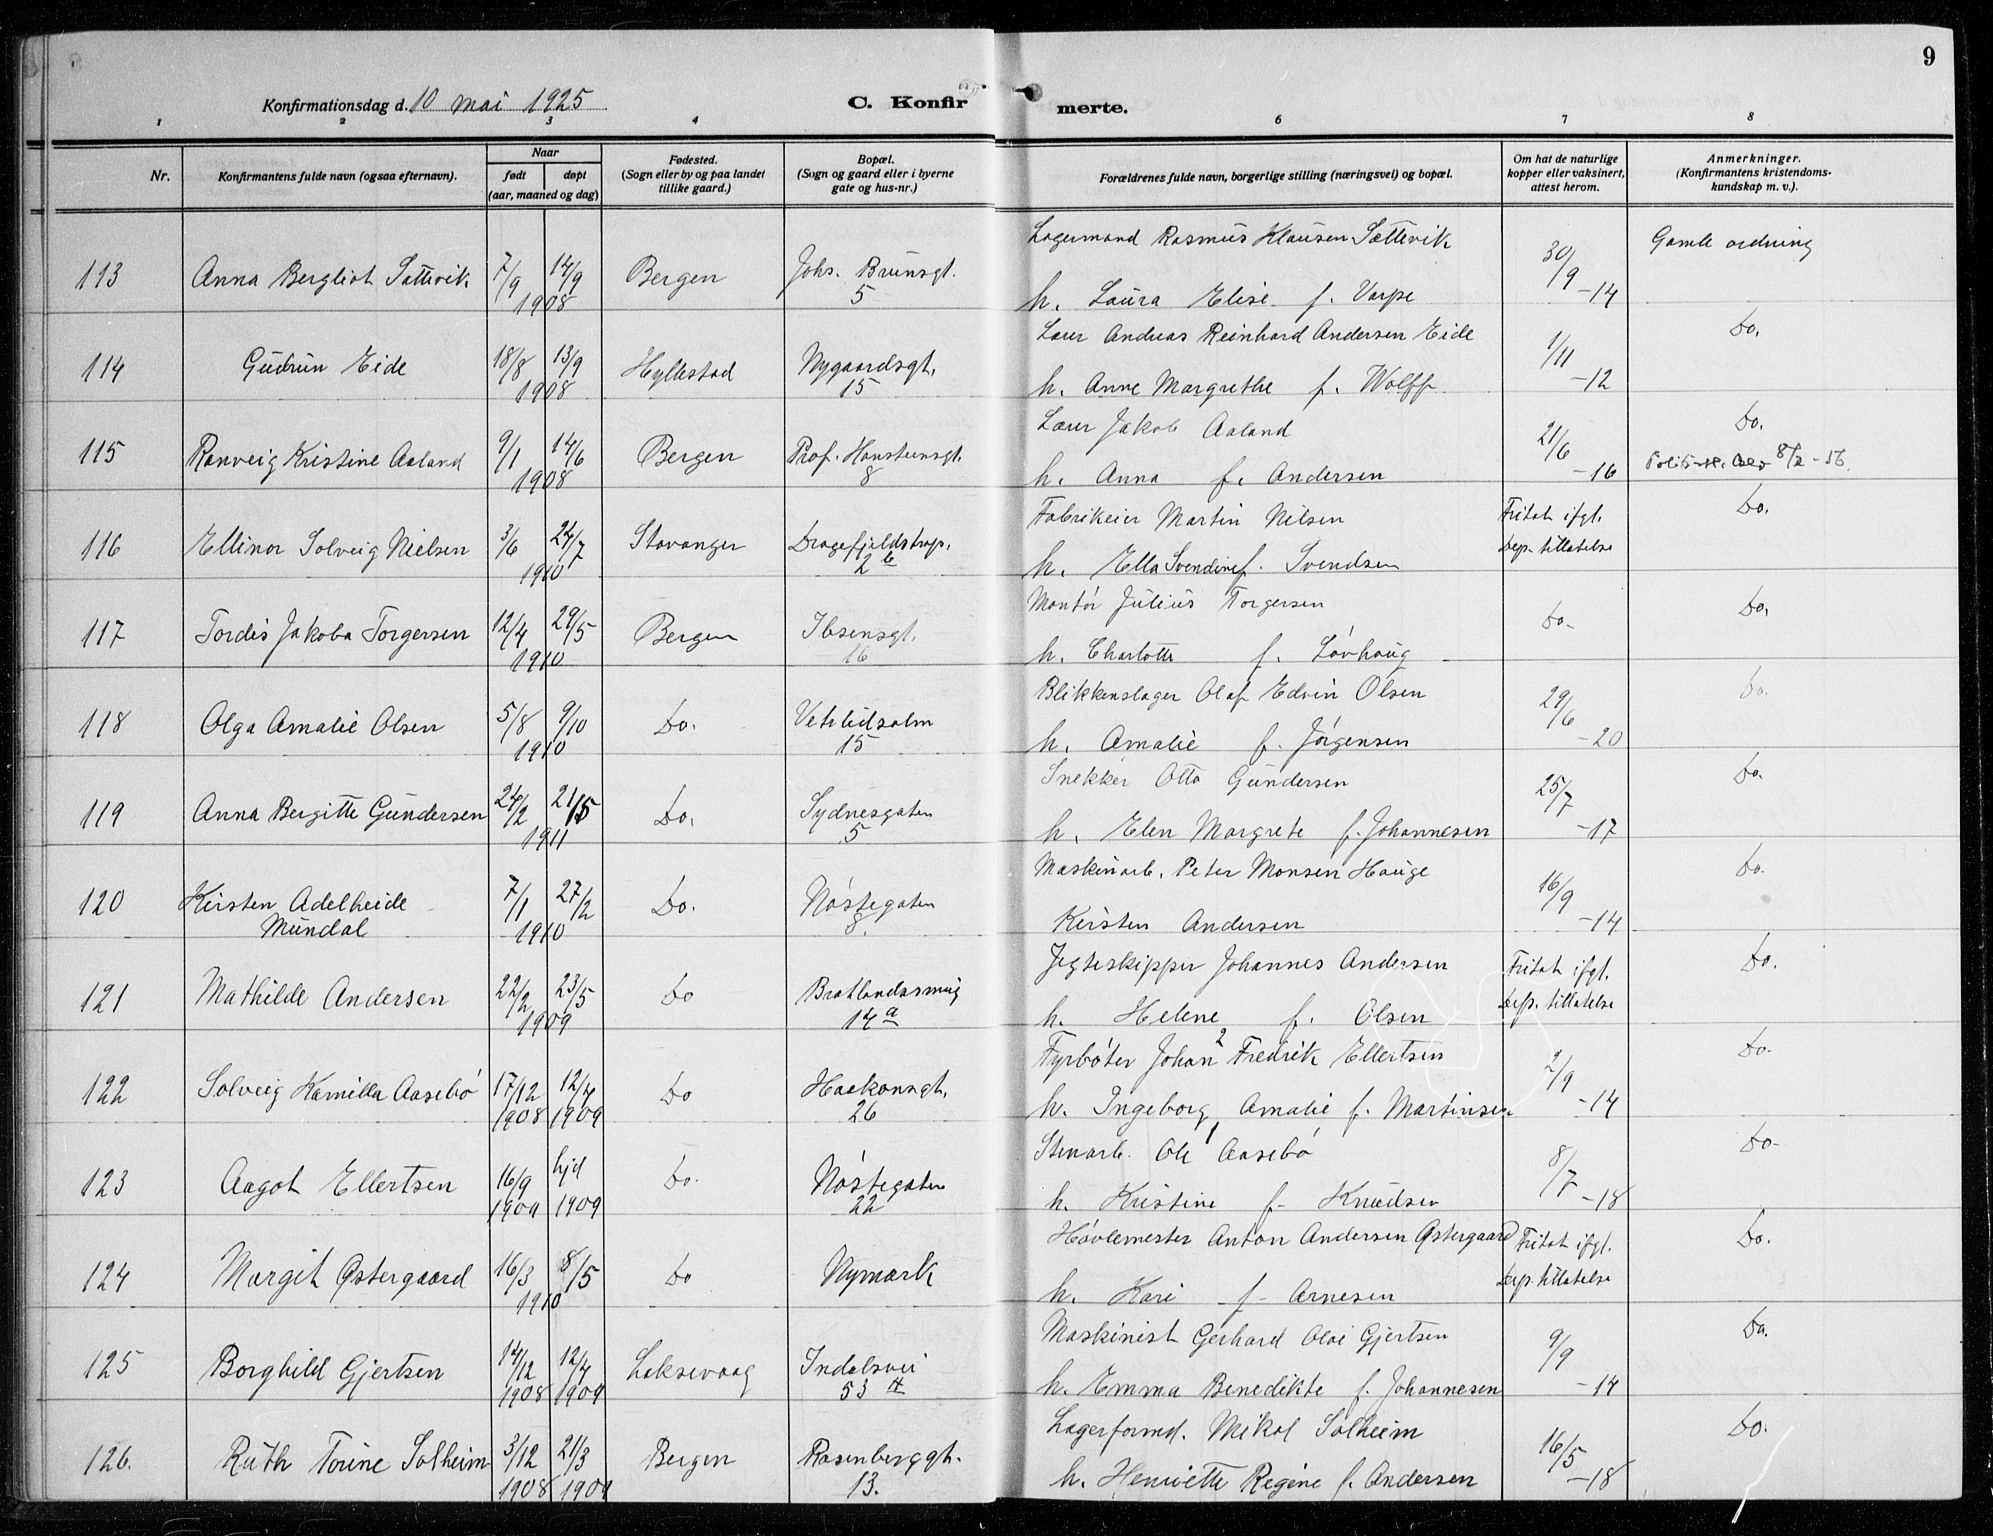 9
Konfirmationsdag d. 10 mai 1925
C. Konfir
merte.
1 2 3 4 6 7 8
Nr.
Konfirmantens fulde navn (ogsaa efternavn).
Naar
født
døpt
(aar, maaned og dag)
Fødested.
(Sogn eller by og paa landet
tillike gaard.)
Bopæl.
(Sogn og gaard eller i byerne
gate og hus-nr.)
Forældrenes fulde navn, borgerlige stilling (næringsvei) og bopæl.
Om hat de naturlige
kopper eller vaksinert,
attest herom.
Anmerkninger.
(Konfirmantens kristendoms-
kundskap m. v.).
Lagermand Rasmus Klausen Sættevik
113 Anna Bergliot Sættevik 7/9 14/9 Bergen Johs. Brunsgt. 30/9 Gamle ordning
1908 5 h. Laura Elise f. Varpe -14
Lærer Andreas Reinhard Andersen Eide
114 Gudrun Eide 18/8 13/9 Hyllestad Nygaardsgt. 1/11 Do.
1908 15 h. Anne Margrethe f. Wolff -12
Lærer Jakob Aaland
115 Ranveig Kristine Aaland 9/1 14/6 Bergen Prof. Hansteensgt. 21/6 Do.
1908 8 h. Anna f. Andersen -16 8/2 - 56.
Fabrikeier Martin Nilsen Fritat ifgl.
116 Ellinor Solveig Nielsen 3/6 24/7 Stavanger Dragefjeldstrap. Dep. tillatelse Do.
1910 2 b h. Ella Svendine f. Svendsen
Montør Julius Torgersen
117 Tordis Jakoba Torgersen 12/4 29/5 Bergen Ibsensgt. Do. Do.
1910 16 h. Charlotte f. Løvhaug
Blikkenslager Olaf Edvin Olsen
118 Olga Amalie Olsen 5/8 9/10 Do. Vetrlidsalm 29/6 Do.
1910 15 h. Amalie f. Jørgensen -20
Snekker Otto Gundersen
119 Anna Bergitte Gundersen 24/2 21/5 Do. Sydnesgaten 25/7 Do.
1911 5 h. Elen Margrete f. Johannesen -17
Maskinarb. Peter Monsen Hauge
120 Kirsten Adelheide 7/1 27/2 Do. Nøstegaten 16/9 Do.
Mundal 1910 8. Kirsten Andersen -14
Jegteskipper Johannes Andersen Fritat ifgl.
121 Mathilde Andersen 22/2 23/5 Do Bratlandssmug Dep. tillatelse Do.
1909 14 a h. Helene f. Olsen
Fyrbøter Johan 2 Fredrik Ellertsen
122 Solveig Kamilla Aasebø 17/12 12/4 Do Haakonsgt. 2/9 Do.
1908 1909 26 h. Ingeborg Amalie f. Martinsen -14
Stenarb. Ole 1 Aasebø
123 Aagot Ellertsen 16/9 hjd Do. Nøstegaten 8/7 Do.
1909 1909 22 h. Kristine f. Knudsen -18
Høvlemester Anton Andersen Østergaard Fritat ifgl.
124 Margit Østergaard 16/3 8/5 Do Nymark Dep. tillatelse Do.
1910 h. Kari f. Arnesen
Maskinist Gerhard Olai Gjertsen
125 Borghild Gjertsen 14/12 12/4 Laksevaag Indalsvei 9/9 Do.
1908 1909 53 A h. Emma Benedikte f. Johannesen -14
Lagerformd. Mikal Solheim
126. Ruth Torine Solheim 3/12 21/3 Bergen Rosenberggt. 16/5 Do.
1908 1909 13. h. Henriette Regine f. Andersen -18